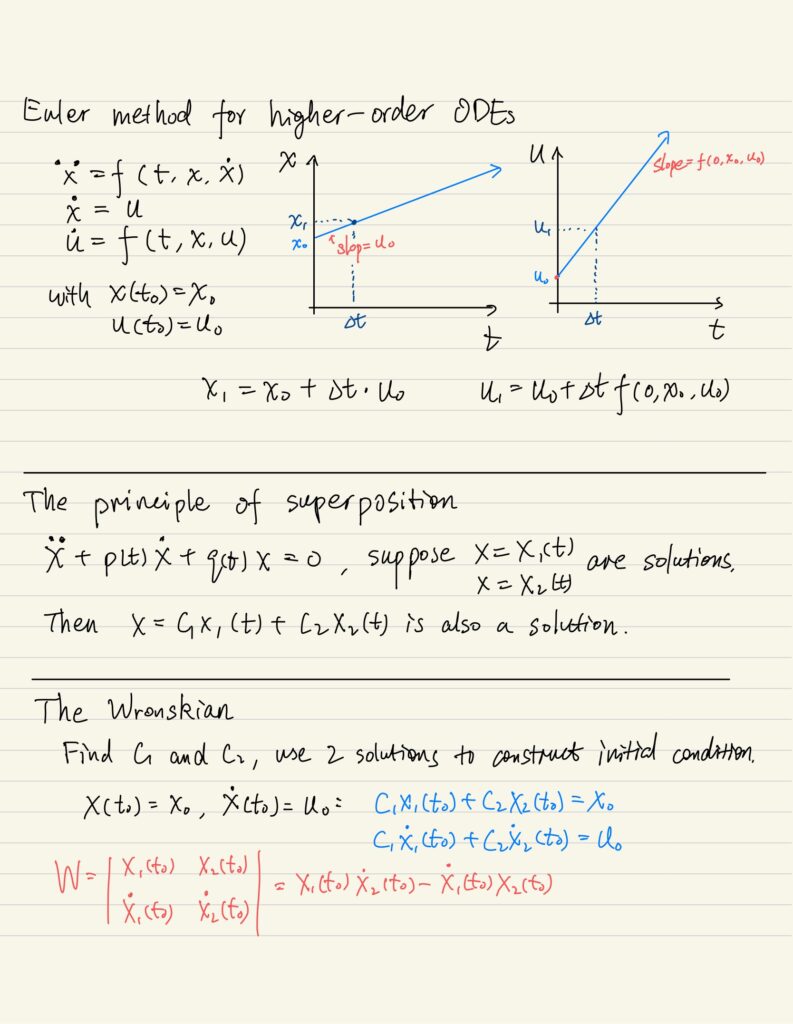 Euler method for higher-order ODEs
ẍ = f (t, x, ẋ)
ẋ = u
u̇ = f (t, x, u)
with x(t₀) = x₀
u(t₀) = u₀
x
x₁
x₀
slop = u₀
Δt
t
u
slope = f(0, x₀, u₀)
u₁
u₀
Δt
t
x₁ = x₀ + Δt · u₀    u₁ = u₀ + Δt f(0, x₀, u₀)
The principle of superposition
ẍ + p(t) ẋ + q(t) x = 0 , suppose x = x₁(t) are solutions.
x = x₂(t)
Then x = C₁x₁(t) + C₂x₂(t) is also a solution.
The Wronskian
Find C₁ and C₂, use 2 solutions to construct initial condition.
x(t₀) = x₀ , ẋ(t₀) = u₀ : C₁x₁(t₀) + C₂x₂(t₀) = x₀
C₁ẋ₁(t₀) + C₂ẋ₂(t₀) = u₀
W = | x₁(t₀) x₂(t₀) | = x₁(t₀) ẋ₂(t₀) − ẋ₁(t₀) x₂(t₀)
| ẋ₁(t₀) ẋ₂(t₀) |